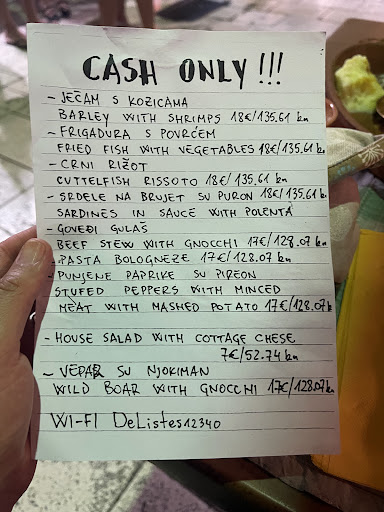 CASH ONLY !!!
- JEČAM S KOZICAMA
BARLEY WITH SHRIMPS 18€/135.61 kn
- FRIGADURA S POVRĆEM
FRIED FISH WITH VEGETABLES 18€/135.61 kn
- CRNI RIŽOT
CUTTELFISH RISSOTO 18€/135.61 kn
- SRDELE NA BRUJET SU PURON 18€/135.61 kn
SARDINES IN SAUCE WITH POLENTA
- GOVEĐI GULAŠ
BEEF STEW WITH GNOCCHI 17€/128.07 kn
- PASTA BOLOGNEZE 17€/128.07 kn
- PUNJENE PAPRIKE SU PIREON
STUFED PEPPERS WITH MINCED
MEAT WITH MASHED POTATO 17€/128.07 k
- HOUSE SALAD WITH COTTAGE CHESE
7€/52.74 kn
- VEPAR SU NJOKIMAN
WILD BOAR WITH GNOCCHI 17€/128.07 kn
WI-FI DeListes12340